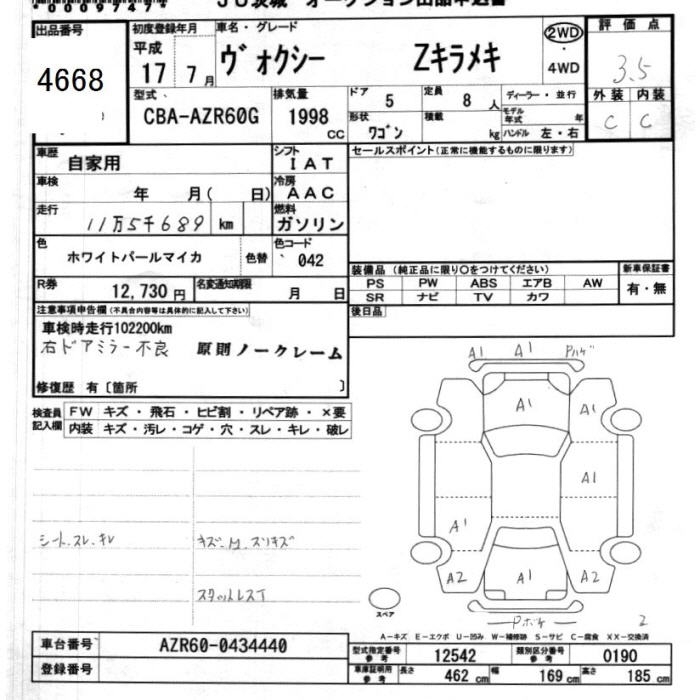 *0009747*
JU茨城 オークション出品申込書
出品番号
4668
初度登録年月
平成
17 7月
車名・グレード
ヴォクシー Zキラメキ
2WD
・
4WD
評価点
3.5
外装 内装
C C
型式
CBA-AZR60G
排気量
1998
CC
ドア 5
定員 8 人
形状 ワゴン
積載 kg
ディーラー・並行
モデル年式 年
ハンドル 左・右
車歴
自家用
シフト
IAT
車検
年 月( 日)
冷房
AAC
走行
11万5千689 km
燃料
ガソリン
色
ホワイトパールマイカ 色替
色コード
042
R券
12,730円
名変通知期限
月 日
セールスポイント(正常に機能するものに限ります)
装備品(純正品に限り○をつけてください)
PS PW ABS エアB AW
SR ナビ TV カワ
新車保証書
有・無
後日品
注意事項申告欄(不具合内容等は具体的に記入して下さい)
車検時走行102200km
右ドアミラー不良 原則ノークレーム
修復歴 有〔箇所 〕
検査員記入欄
FW キズ・飛石・ヒビ割・リペア跡・×要
内装 キズ・汚レ・コゲ・穴・スレ・キレ・破レ
シートスレ.キレ
キズ.M.スリキズ
スタットレスT
A1 A1 Pハゲ
A1 A1
A1
A1
A2 A1 A2
Pボケ 2
スペア
A-キズ E-エクボ U-凹み W-補修跡 S-サビ C-腐食 XX-交換済
車台番号
AZR60-0434440
登録番号
型式指定番号参考 12542
類別区分番号参考 0190
車庫証明用参考 長さ 462 cm 幅 169 cm 高さ 185 cm